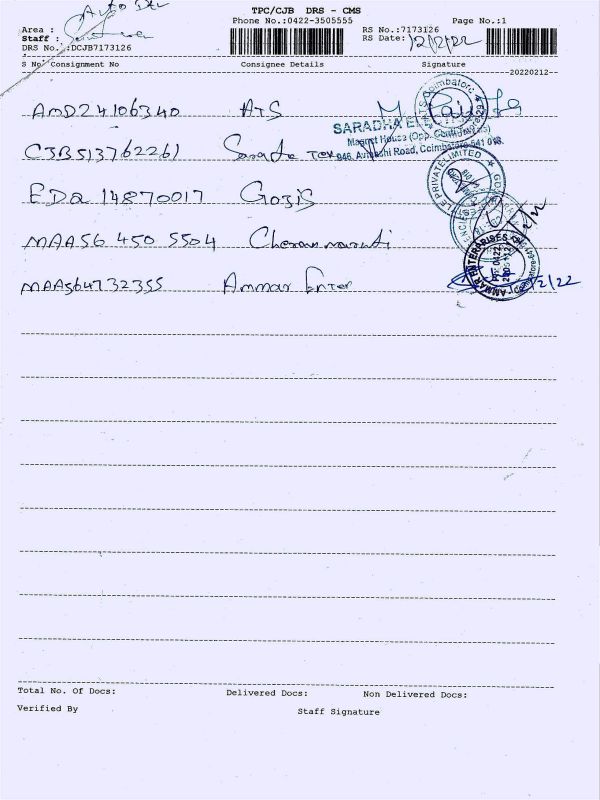 Auto
TPC/CJB DRS - CMS
Phone No.:0422-3505555 Page No.:1
Area : RS No.:7173126
Staff : RS Date: 12/2/22
DRS No.:DCJB7173126
S No Consignment No Consignee Details Signature
20220212
AMD24106340 ATS
SARADHA
Magnet House (Opp.
946, Avinashi Road, Coimbatore-641 018.
CJB513762261
LE PRIVATE LIMITED
EDQ 14870017 Gojis
MAA56 450 5504 Cheran maruti
AMMAR ENTERPRISES
MAA564732355 Ammar Enter 12/2/22
Total No. Of Docs: Delivered Docs: Non Delivered Docs:
Verified By Staff Signature